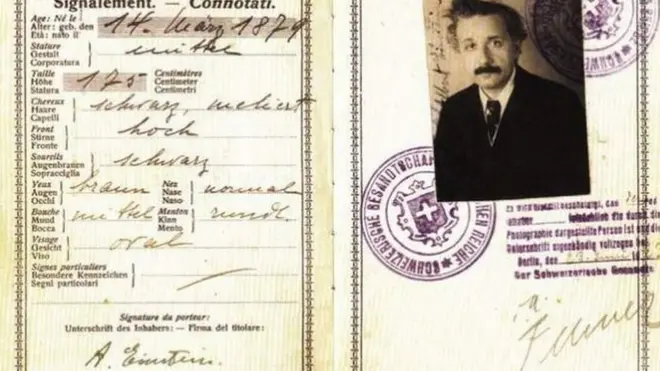 Signalement. — Connotati.
Age: Né le
Alter: geb. den 14. März 1879
Età: nato il
Stature
Gestalt mittel
Corporatura
Taille Centimètres
Höhe 175 Centimeter
Statura Centimetri
Cheveux
Haare schwarz, meliert
Capelli
Front
Stirne hoch
Fronte
Sourcils
Augenbrauen schwarz
Sopracciglia
Yeux Nez
Augen braun Nase normal
Occhi Naso
Bouche Menton
Mund mittel Kinn rund.
Bocca Mento
Visage
Gesicht oval
Viso
Signes particuliers
Besondere Kennzeichen
Segni particolari
Signature du porteur:
Unterschrift des Inhabers: — Firma del titolare:
A. Einstein.
SCHWEIZERISCHE BESANDTSCHA
EN REICHE
Es wird hiermit bescheinigt, dass
Inhaber die durch die
Photographie dargestellte Person ist und die
Unterschrift eigenhändig vollzogen
Berlin, den
Der Schweizerische Gesandte